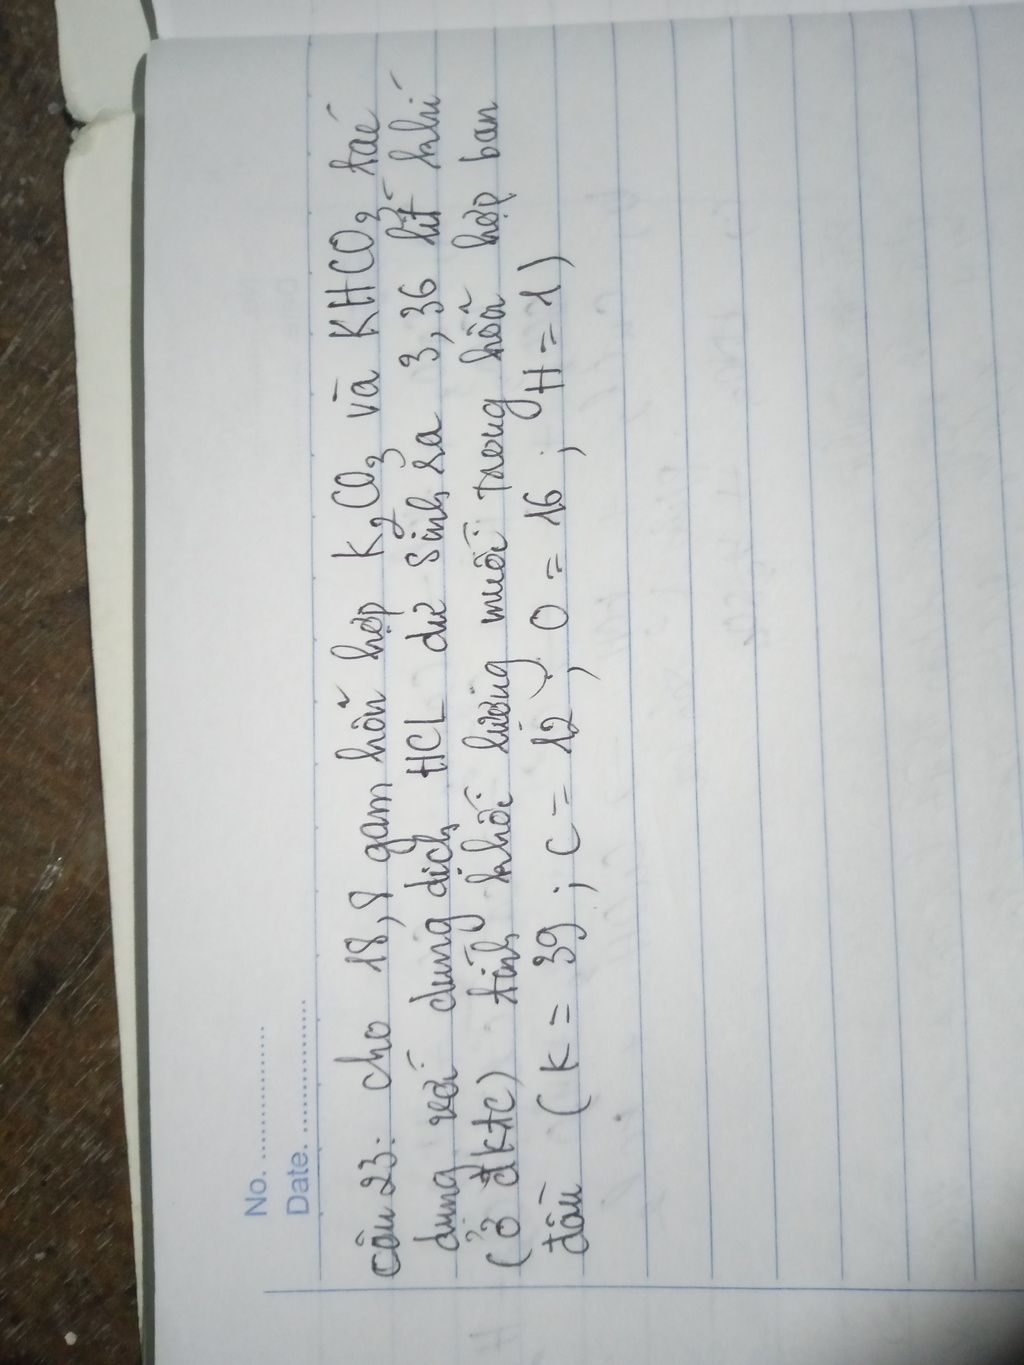 No. ....................
Date. ....................
câu 23: cho 18,8 gam hỗn hợp K2CO3 và KHCO3 tác
dụng với dung dịch HCL dư sinh ra 3,36 lít khí
(ở đktc) tính khối lượng muối trong hỗn hợp ban
đầu (K = 39 ; C = 12 ; O = 16 ; H = 1)